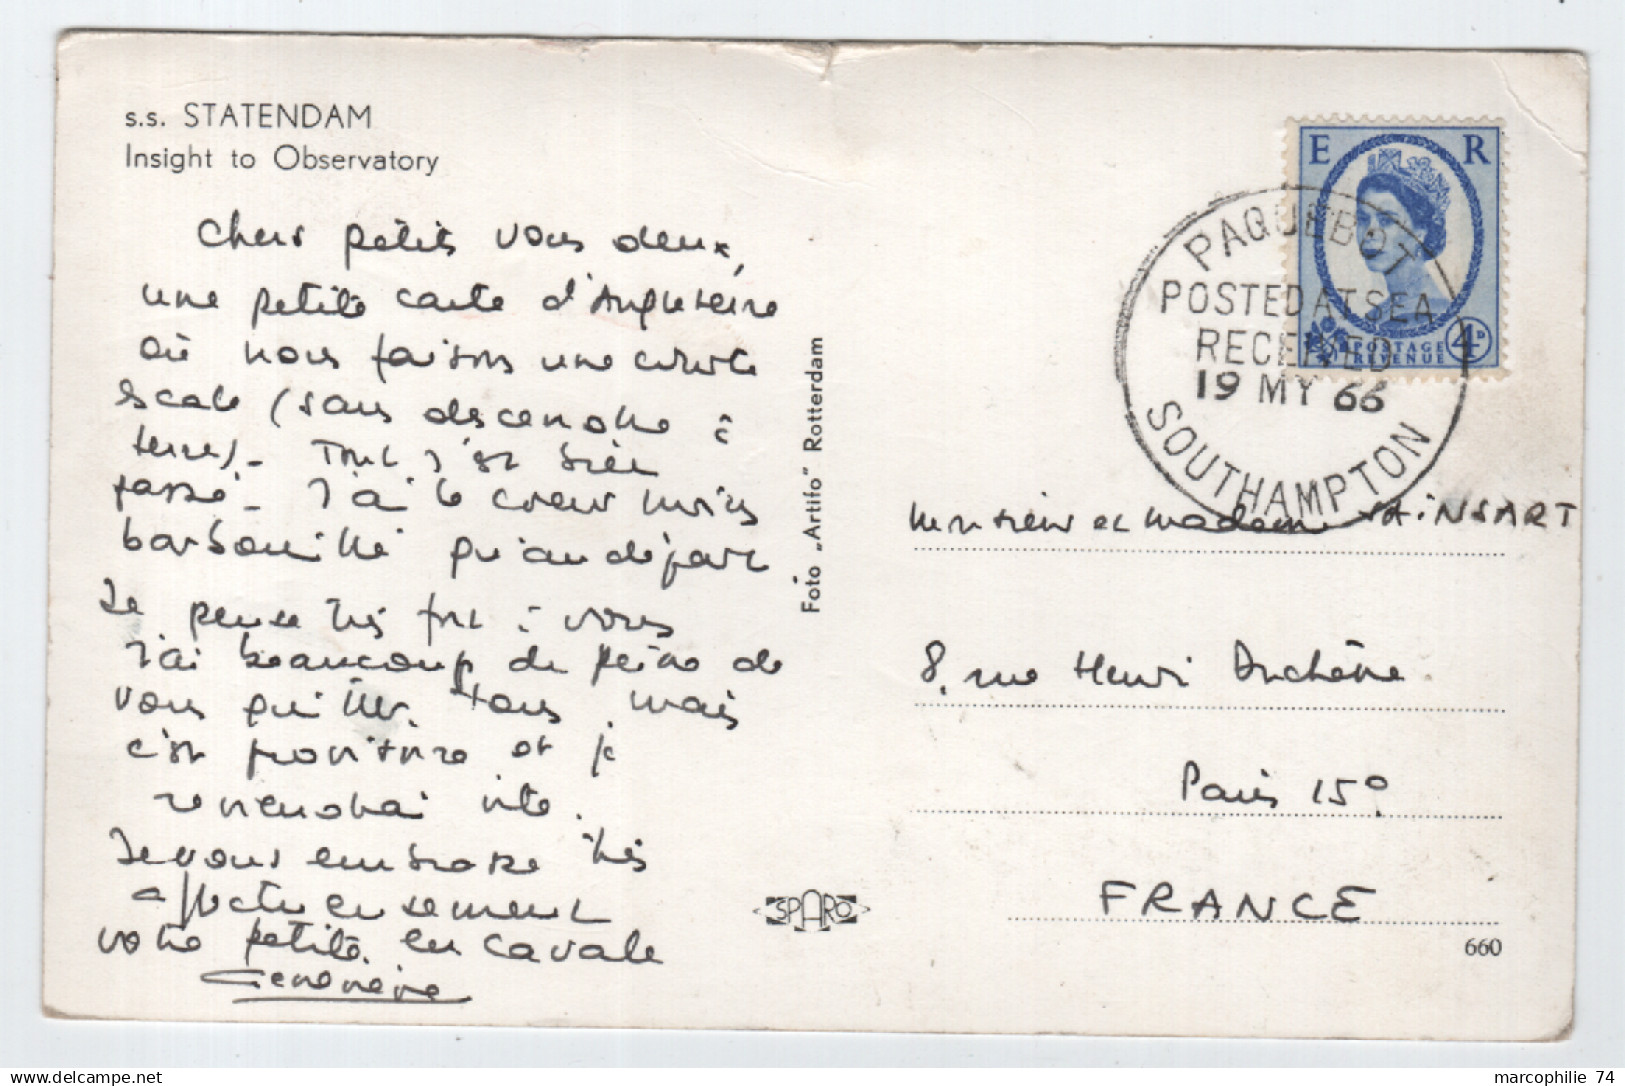 s.s. STATENDAM
Insight to Observatory
Chers petits vous deux,
une petite carte d'Angleterre
où nous faisons une courte
escale (sans descendre à
terre). Tout s'est bien
passé. J'ai le coeur moins
barbouillé qu'au départ
Je pense très fort à vous
J'ai beaucoup de peine de
vous quitter tous, mais
c'est provisoire et je
reviendrai vite.
Je vous embrasse très
affectueusement
votre petite en cavale
Geneviève
Foto „Artifo" Rotterdam
SPARO
E R
POSTAGE REVENUE 4D
PAQUEBOT
POSTED AT SEA
RECEIVED
19 MY 66
SOUTHAMPTON
Monsieur et Madame SAINSART
8, rue Henri Duchêne
Paris 15º
FRANCE
660
marcophilie 74